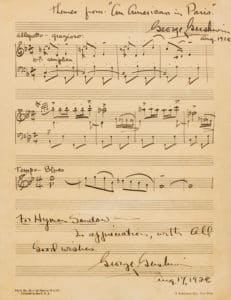 Themes from "An American in Paris"
George Gershwin
Aug. 1928
Allegretto - grazioso
Tempo Blues
For Hyman Sandow -
In appreciation, with all
Good wishes.
George Gershwin
Aug 17, 1928